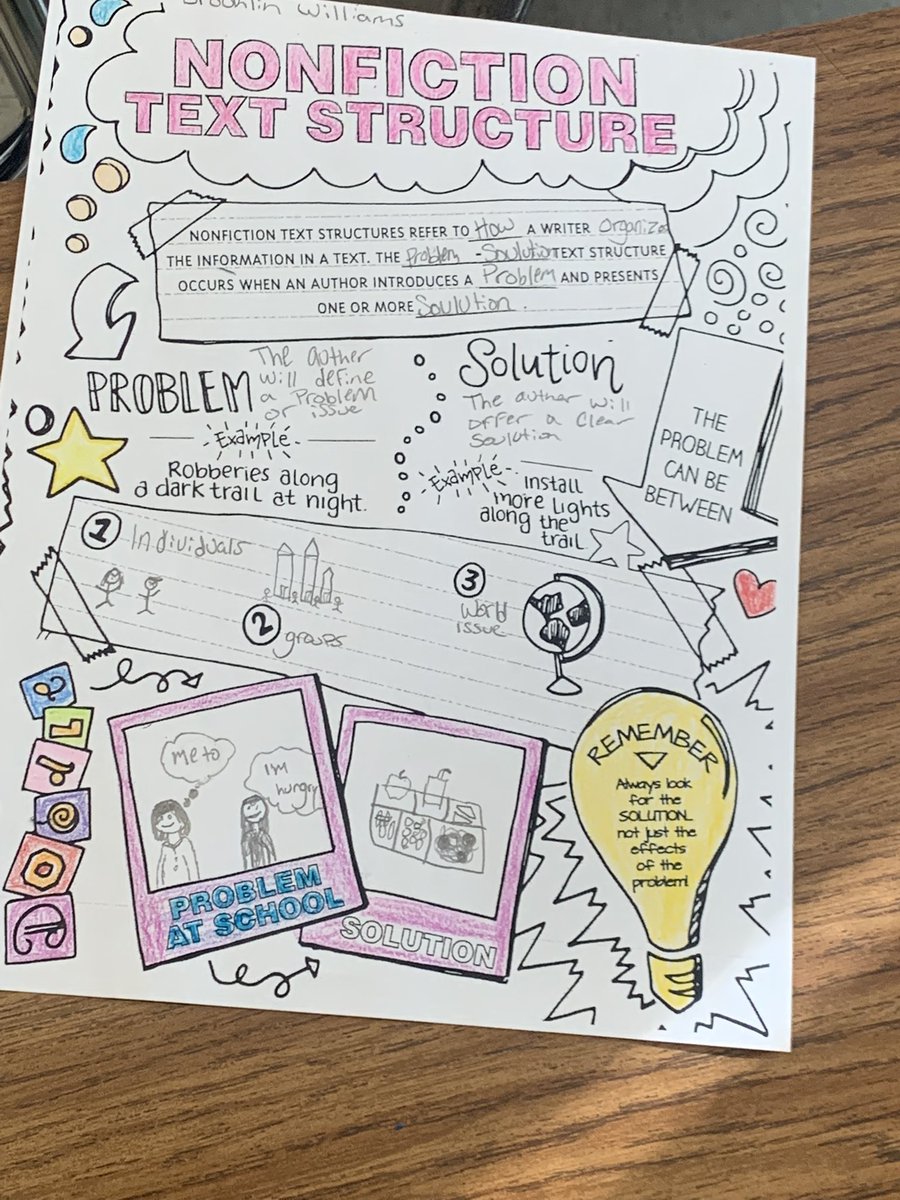 Brooklin Williams
NONFICTION
TEXT STRUCTURE
NONFICTION TEXT STRUCTURES REFER TO How A WRITER Organizes
THE INFORMATION IN A TEXT. THE Problem - Soulution TEXT STRUCTURE
OCCURS WHEN AN AUTHOR INTRODUCES A Problem AND PRESENTS
ONE OR MORE Soulution.
PROBLEM
The author
will define
a Problem
or issue
Example
Robberies along
a dark trail at night.
Solution
The author will
offer a Clear
Soulution
Example
install
more lights
along the
trail
THE
PROBLEM
CAN BE
BETWEEN
1 Individuals
2 groups
3
World
issue
me to
I'm
hungry
PROBLEM
AT SCHOOL
SOLUTION
REMEMBER
Always look
for the
SOLUTION
not just the
effects
of the
problem!